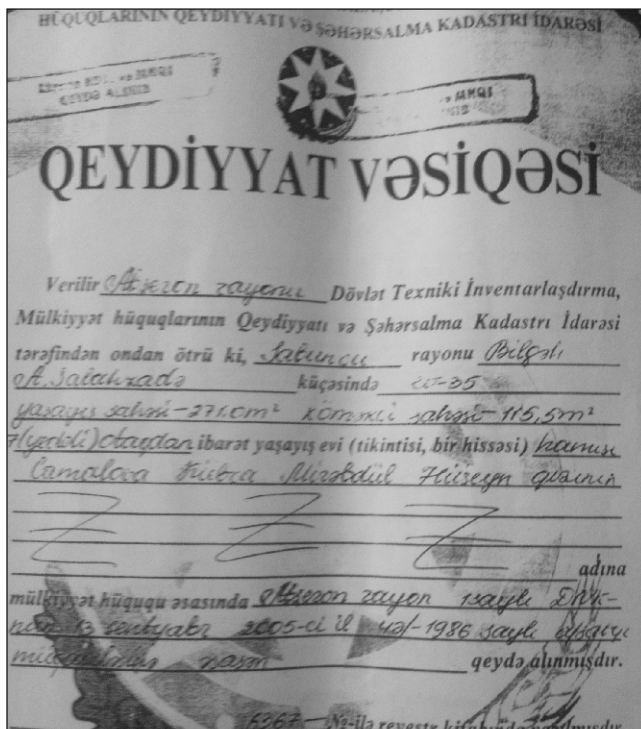 HÜQUQLARININ QEYDİYYATI VƏ ŞƏHƏRSALMA KADASTRI İDARƏSİ
QEYDƏ ALINIB
QEYDİYYAT VƏSİQƏSİ
Verilir Abşeron rayonu Dövlət Texniki İnventarlaşdırma,
Mülkiyyət hüquqlarının Qeydiyyatı və Şəhərsalma Kadastrı İdarəsi
tərəfindən ondan ötrü ki, Sabunçu rayonu Bilgəh
A. Salahzadə küçəsində 35
yaşayış sahəsi-271.0m² köməkçi sahəsi-115,5m²
7(yeddi) otaqdan ibarət yaşayış evi (tikintisi, bir hissəsi) hamısı
Camalova Kübra Mirəbdül Hüseyn qızının
adına
mülkiyyət hüququ əsasında Abşeron rayon 1 saylı DNK-
nın 13 sentyabr 2005-ci il 1986 saylı
qeydə alınmışdır.
6367 № -ilə reyestr kitabında